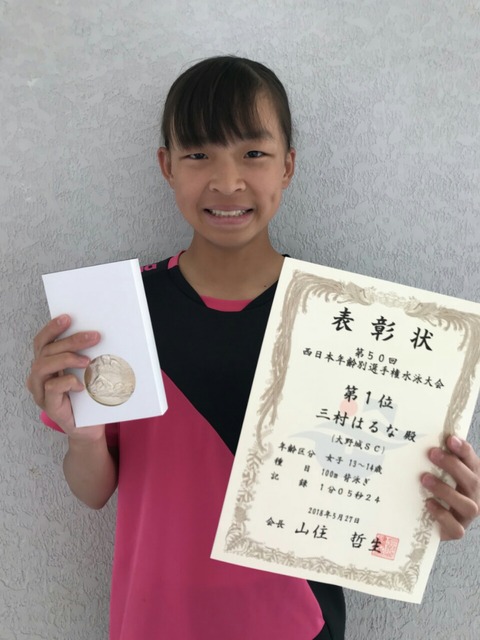 表彰状
第50回
西日本年齢別選手権水泳大会
第1位
三村はるな 殿
(大野城SC)
年齢区分 女子 13~14歳
種目 100m 背泳ぎ
記録 1分05秒24
2018年5月27日
会長 山住 哲生